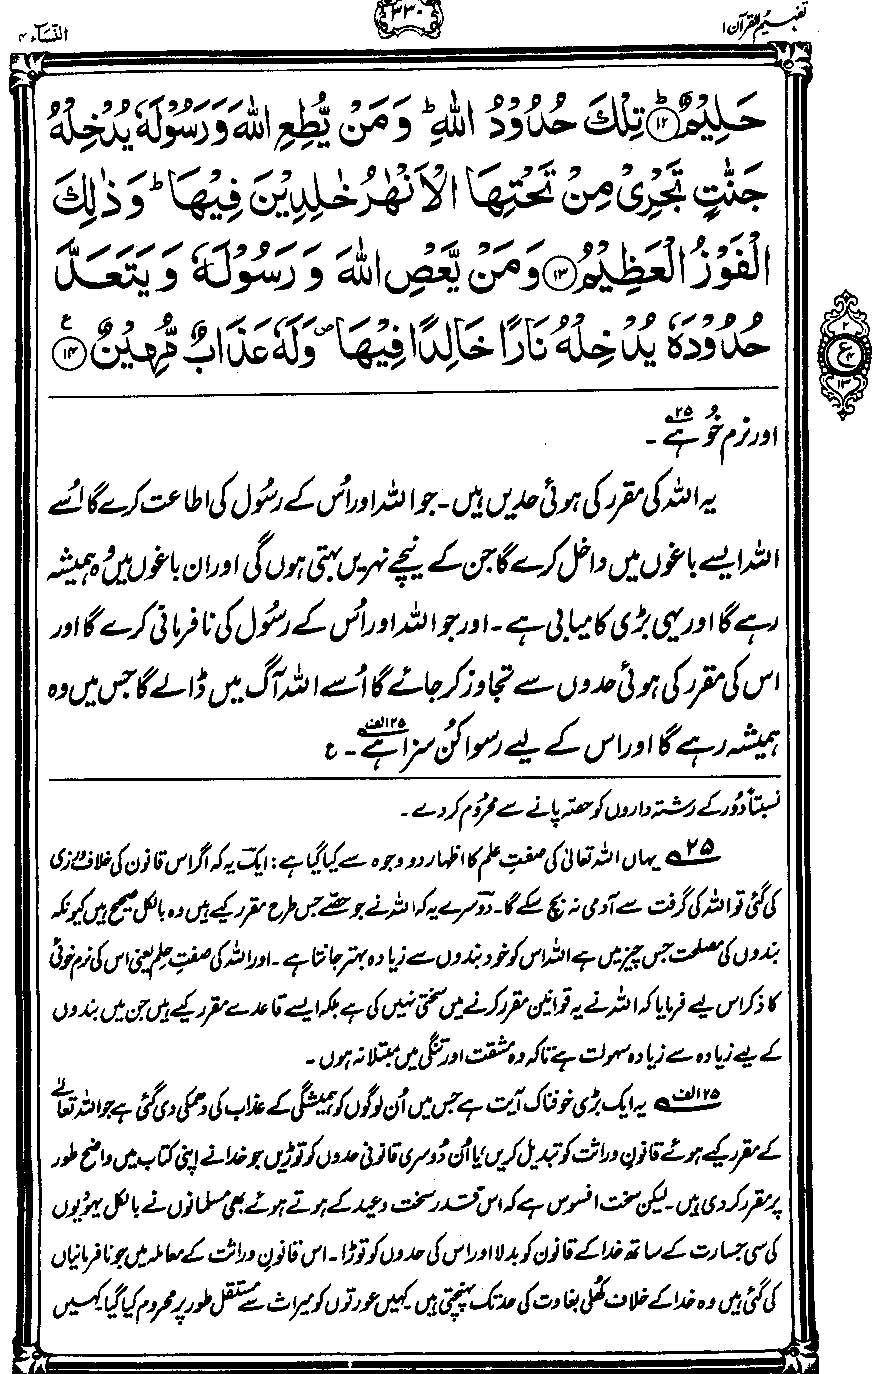 تفہیم القرآن ۱
۳۳۰
النّسآء ۴
حَلِيْمٌ ﴿۱۲﴾ تِلْكَ حُدُوْدُ اللّٰهِ ؕ وَمَنْ يُّطِعِ اللّٰهَ وَرَسُوْلَهٗ يُدْخِلْهُ
جَنّٰتٍ تَجْرِيْ مِنْ تَحْتِهَا الْاَنْهٰرُ خٰلِدِيْنَ فِيْهَا ؕ وَذٰلِكَ
الْفَوْزُ الْعَظِيْمُ ﴿۱۳﴾ وَمَنْ يَّعْصِ اللّٰهَ وَرَسُوْلَهٗ وَيَتَعَدَّ
حُدُوْدَهٗ يُدْخِلْهُ نَارًا خَالِدًا فِيْهَا ۖ وَلَهٗ عَذَابٌ مُّهِيْنٌ ﴿۱۴﴾ ع
۲
ع
۴
۱۳
اور نرم خُو ہے۲۵۔
یہ اللہ کی مقرر کی ہوئی حدیں ہیں۔ جو اللہ اور اُس کے رسُول کی اطاعت کرے گا اُسے
اللہ ایسے باغوں میں داخل کرے گا جن کے نیچے نہریں بہتی ہوں گی اور ان باغوں میں وُہ ہمیشہ
رہے گا اور یہی بڑی کامیابی ہے۔ اور جو اللہ اور اُس کے رسُول کی نافرمانی کرے گا اور
اس کی مقرر کی ہوئی حدوں سے تجاوز کر جائے گا اُسے اللہ آگ میں ڈالے گا جس میں وہ
ہمیشہ رہے گا اور اس کے لیے رسوا کُن سزا ہے۲۵الف۔ ع
نسبتاً دُور کے رشتہ داروں کو حصّہ پانے سے محرُوم کر دے۔
۲۵ یہاں اللہ تعالیٰ کی صفتِ علم کا اظہار دو وجوہ سے کیا گیا ہے: ایک یہ کہ اگر اس قانون کی خلاف ورزی
کی گئی تو اللہ کی گرفت سے آدمی نہ بچ سکے گا۔ دوسرے یہ کہ اللہ نے جو حصّے جس طرح مقرر کیے ہیں وہ بالکل صحیح ہیں کیونکہ
بندوں کی مصلحت جس چیز میں ہے اللہ اس کو خود بندوں سے زیادہ بہتر جانتا ہے۔ اور اللہ کی صفتِ حلم یعنی اس کی نرم خوئی
کا ذکر اس لیے فرمایا کہ اللہ نے یہ قوانین مقرر کرنے میں سختی نہیں کی ہے بلکہ ایسے قاعدے مقرر کیے ہیں جن میں بندوں
کے لیے زیادہ سے زیادہ سہولت ہے تاکہ وہ مشقت اور تنگی میں مبتلا نہ ہوں۔
۲۵الف یہ ایک بڑی خوفناک آیت ہے جس میں اُن لوگوں کو ہمیشگی کے عذاب کی دھمکی دی گئی ہے جو اللہ تعالیٰ
کے مقرر کیے ہوئے قانونِ وراثت کو تبدیل کریں، یا اُن دُوسری قانونی حدوں کو توڑیں جو خدا نے اپنی کتاب میں واضح طور
پر مقرر کر دی ہیں۔ لیکن سخت افسوس ہے کہ اس قدر سخت وعید کے ہوتے ہوئے بھی مسلمانوں نے بالکل یہودیوں
کی سی جسارت کے ساتھ خدا کے قانون کو بدلا اور اس کی حدوں کو توڑا۔ اس قانونِ وراثت کے معاملہ میں جو نافرمانیاں
کی گئی ہیں وہ خدا کے خلاف کھُلی بغاوت کی حد تک پہنچتی ہیں۔ کہیں عورتوں کو میراث سے مستقل طور پر محروم کیا گیا۔ کہیں